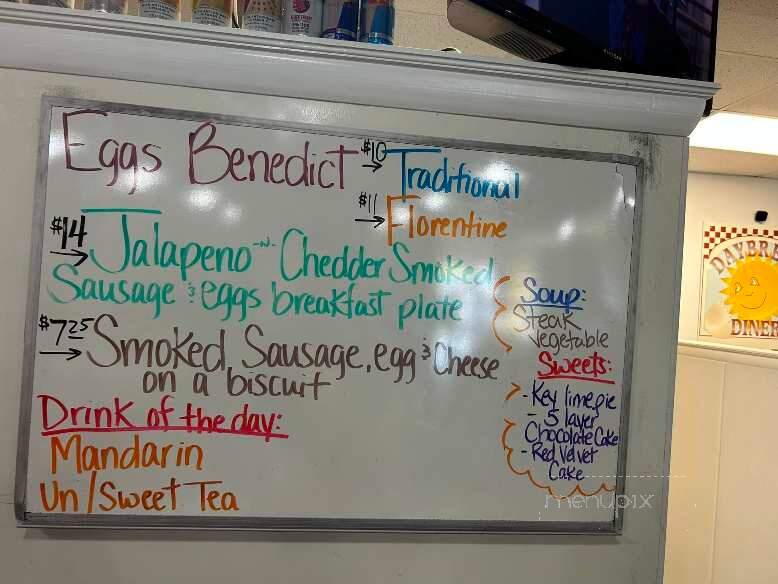 Eggs Benedict
$10 Traditional
$11 Florentine
$14 Jalapeno -n- Chedder Smoked
Sausage & eggs breakfast plate
$7.25 Smoked Sausage, egg & Cheese
on a biscuit
Drink of the day:
Mandarin
Un/Sweet Tea
Soup:
Steak
Vegetable
Sweets:
- Key lime pie
- 5 layer
Chocolate Cake
- Red Velvet
Cake
menupix
DAYBRE
DINER